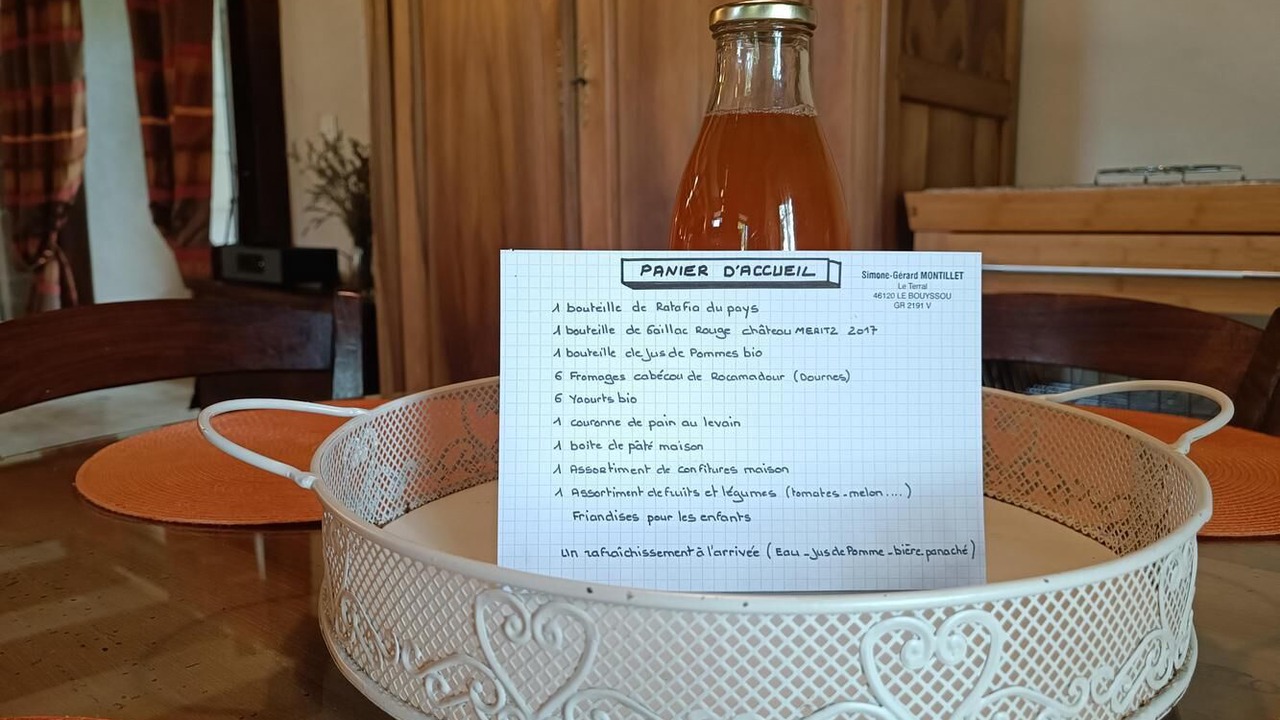 PANIER D'ACCUEIL
Simone-Gérard MONTILLET
Le Terral
46120 LE BOUYSSOU
GR 2191 V
1 bouteille de Ratafia du pays
1 bouteille de Gaillac Rouge château MERITZ 2017
1 bouteille de Jus de Pommes bio
6 Fromages cabécou de Rocamadour (Dournes)
6 Yaourts bio
1 couronne de pain au levain
1 boite de pâté maison
1 Assortiment de confitures maison
1 Assortiment de fruits et légumes (tomates-melon....)
Friandises pour les enfants
un rafraîchissement à l'arrivée (Eau-Jus de Pomme-bière, panaché)